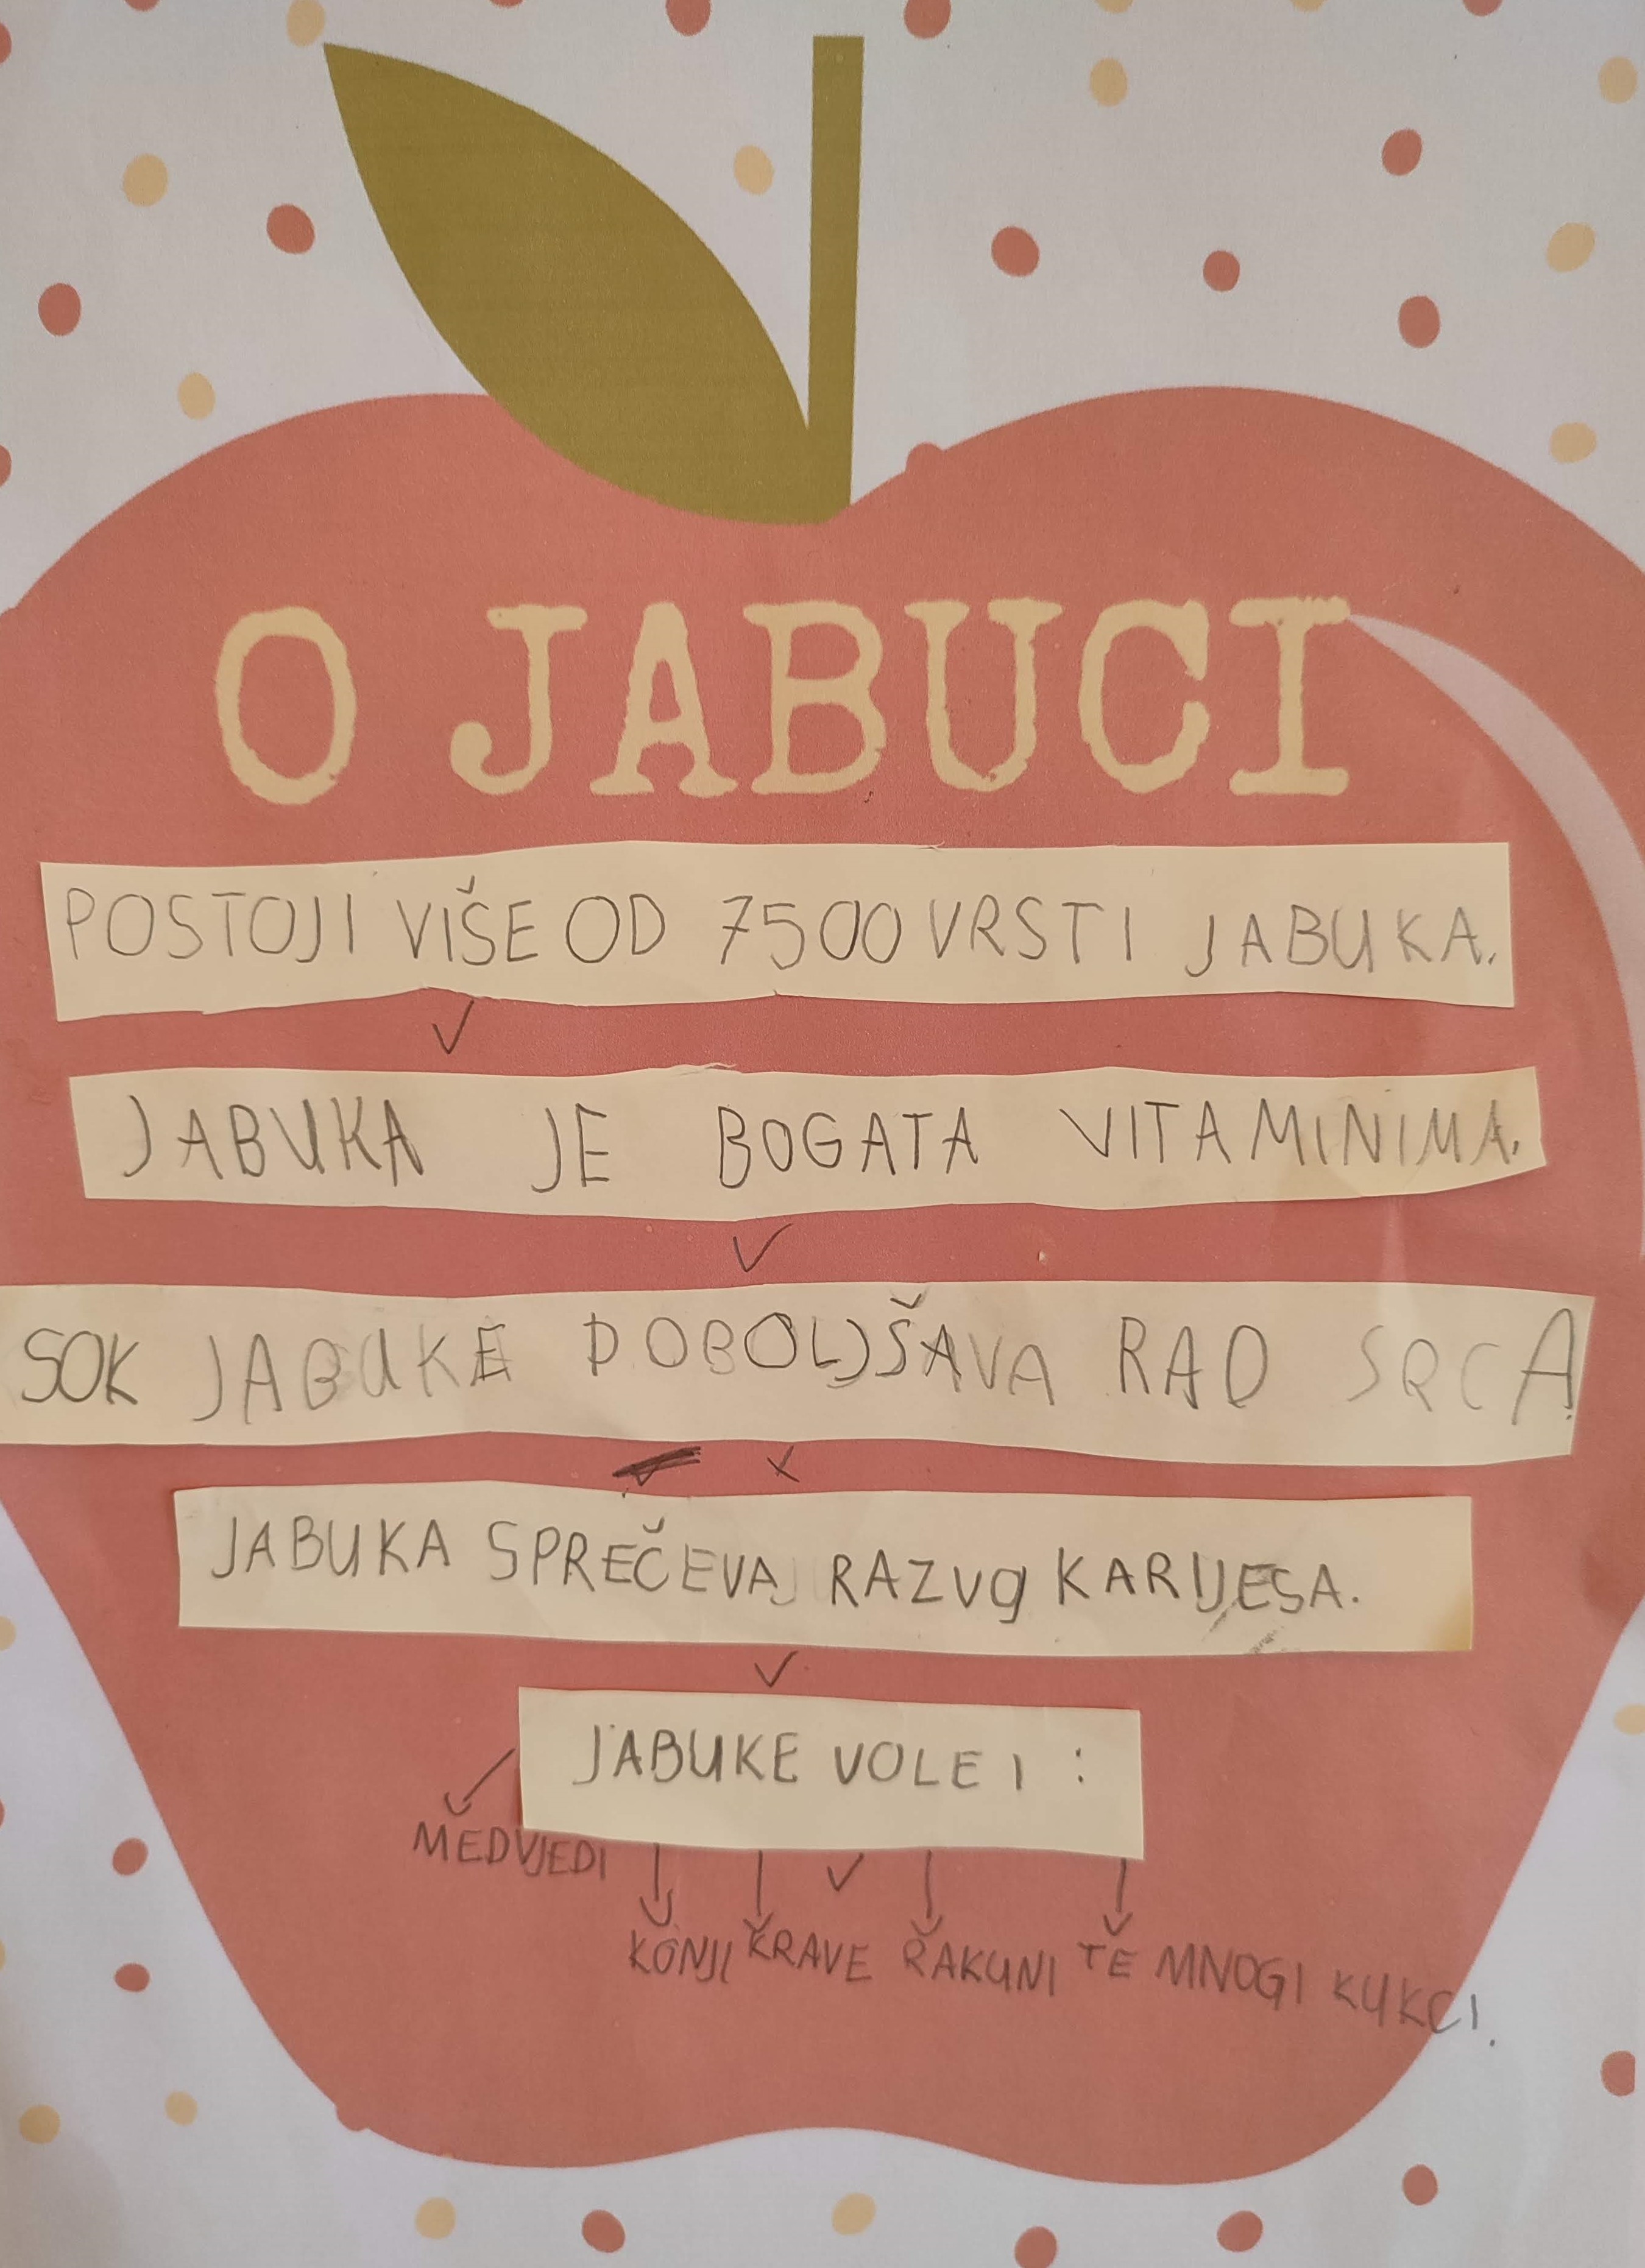 O JABUCI
POSTOJI VIŠE OD 7500 VRSTI JABUKA.
JABUKA JE BOGATA VITAMINIMA.
SOK JABUKE POBOLJŠAVA RAD SRCA.
JABUKA SPREČEVA RAZVOJ KARIJESA.
JABUKE VOLE I :
MEDVJEDI
KONJI KRAVE RAKUNI TE MNOGI KUKCI.